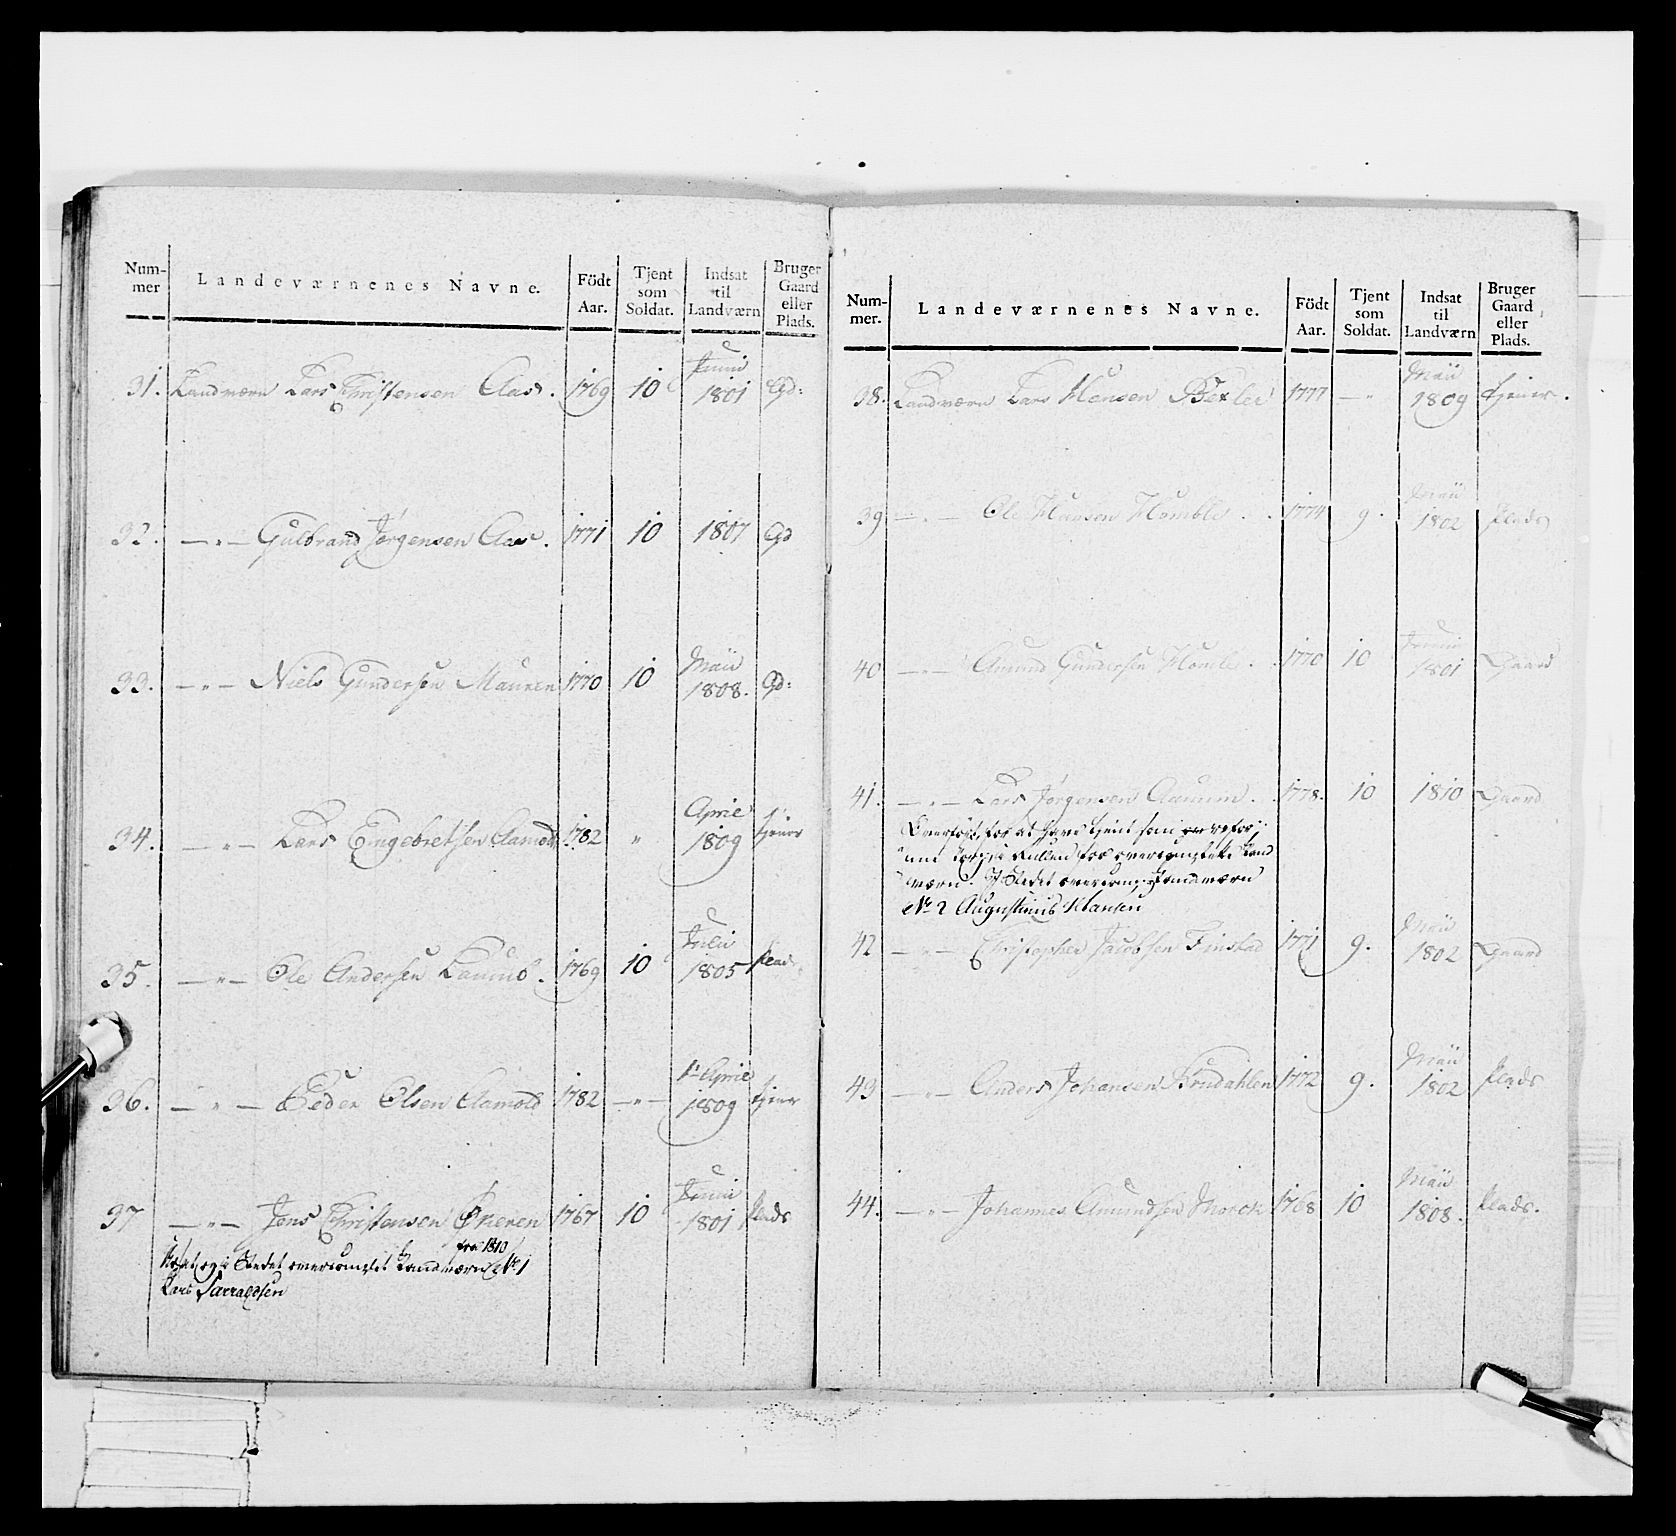 Num-
mer
Landeværnenes Navne.
Födt
Aar.
Tjent
som
Soldat.
Indsat
til
Landværn
Bruger
Gaard
eller
Plads.
31. Landværn Lars Christensen Aas. 1769 10 Junii 1801 Gd:
32. —"— Gulbrand Jørgensen Aas. 1771 10 1807 Gd
33. —"— Niels Gundersen Mauren 1770 10 Maii 1808. Gd:
34. —"— Lars Engebretsen Aamold 1782 " April 1809 tjener
35. —"— Ole Andersen 1769 10 Julii 1805 Plads
36. —"— Peder Olsen Aamold 1782 —"— 1' April 1809 tjener
37 —"— Jens Christensen Økeren 1767 10 Junii 1801 Plads
fra 1810
i Stedet overcomplet Landværn No 1
Lars
Num-
mer.
Landeværnenes Navne.
Födt
Aar.
Tjent
som
Soldat.
Indsat
til
Landværn
Bruger
Gaard
eller
Plads.
38. Landværn Lars Hansen 1777 —"— Maii 1809 tjener.
39 —"— Ole Hansen Homble . . 1774 9. Maii 1802 Plads
40 —"— Amund Gundersen Homble . . 1770 10 Junii 1801 Gaard
41. —"— Lars Jørgensen . . 1778. 10 1810 Gaard
for at have tjent som
for overcomplette Land
værn. I Stedet overcomp: Landværn
No 2 Augustinus Hansen
42 —"— Christopher Jacobsen Finstad 1771 9. Maii 1802 Gaard
43 —"— Anders Johansen Brudahlen 1772 9. Maii 1802 Plads
44. —"— Johannes Amundsen Morck 1768 10 Maii 1808. Plads.